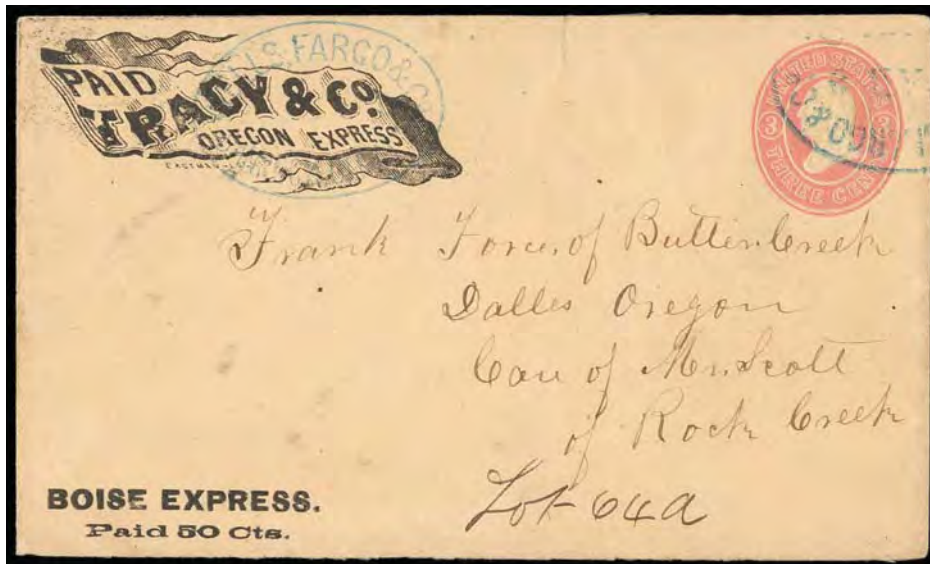 PAID
TRACY & Co.
OREGON EXPRESS
WELLS, FARGO & CO
UNITED STATES
THREE CENTS
Frank Force, of Butter Creek
Dalles Oregon
Care of Mr. Scott
of Rock Creek
Lot 64a
BOISE EXPRESS.
Paid 50 Cts.